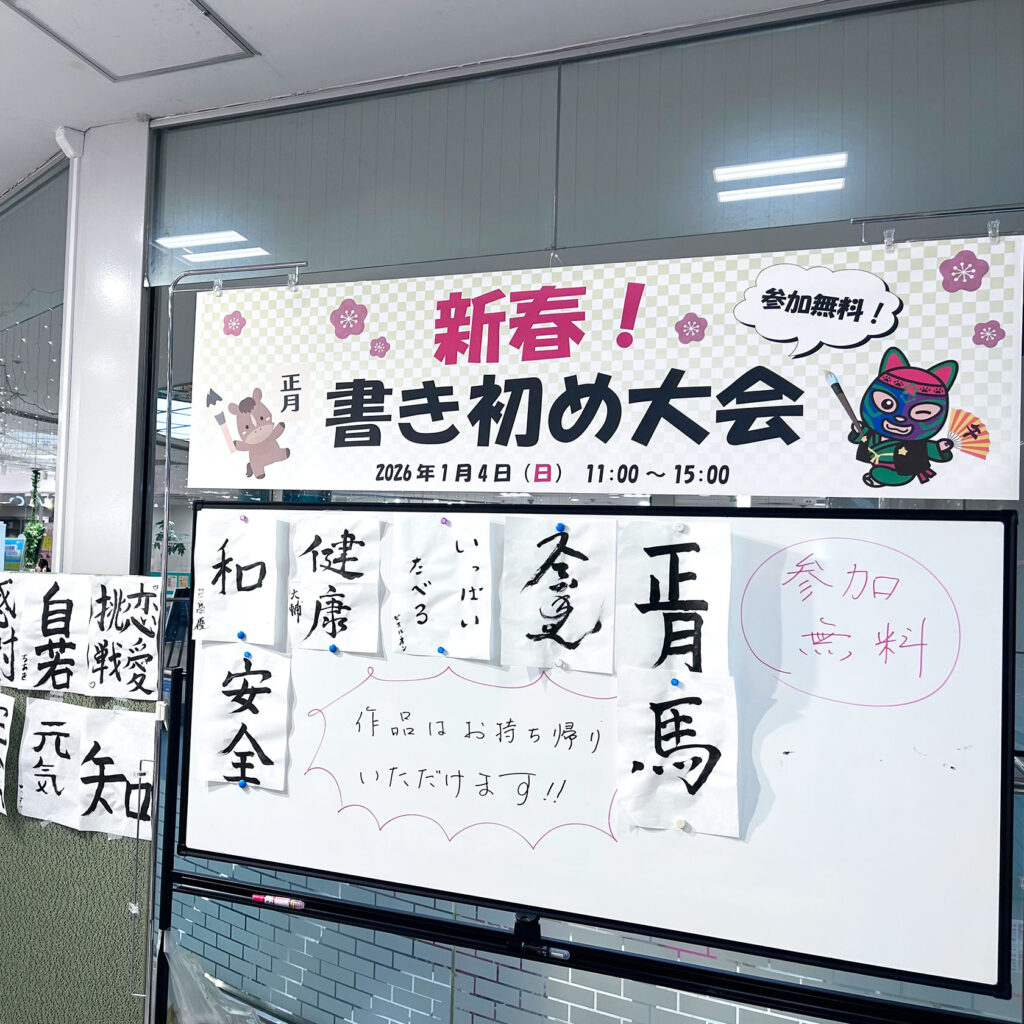 新春！
書き初め大会
2026年1月4日（日） 11:00～15:00
参加無料！
正月
和
健康
大輔
いっぱい
たべる
正月
馬
安全
参加
無料
作品はお持ち帰り
いただけます!!
自若
ちあき
恋愛
挑戦
元気
知